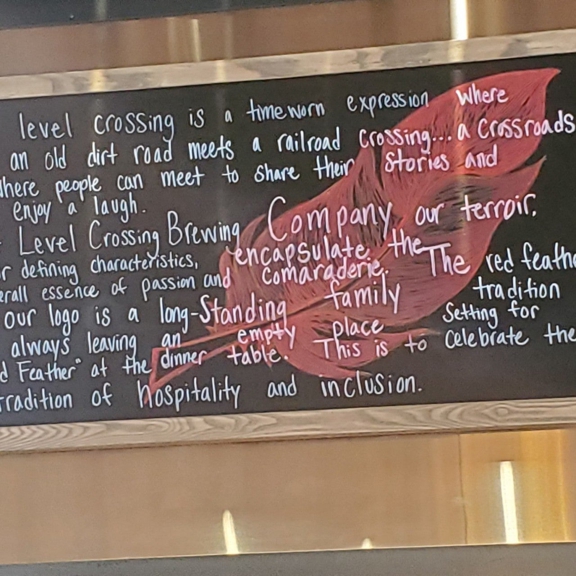 level crossing is a timeworn expression where
an old dirt road meets a railroad crossing... a crossroads
where people can meet to share their stories and
enjoy a laugh.
Level Crossing Brewing Company our terroir,
defining characteristics, encapsulate the
essence of passion and comaraderie. The red
our logo is a long-standing family tradition
always leaving an empty place setting for
Feather" at the dinner table. This is to celebrate the
tradition of hospitality and inclusion.